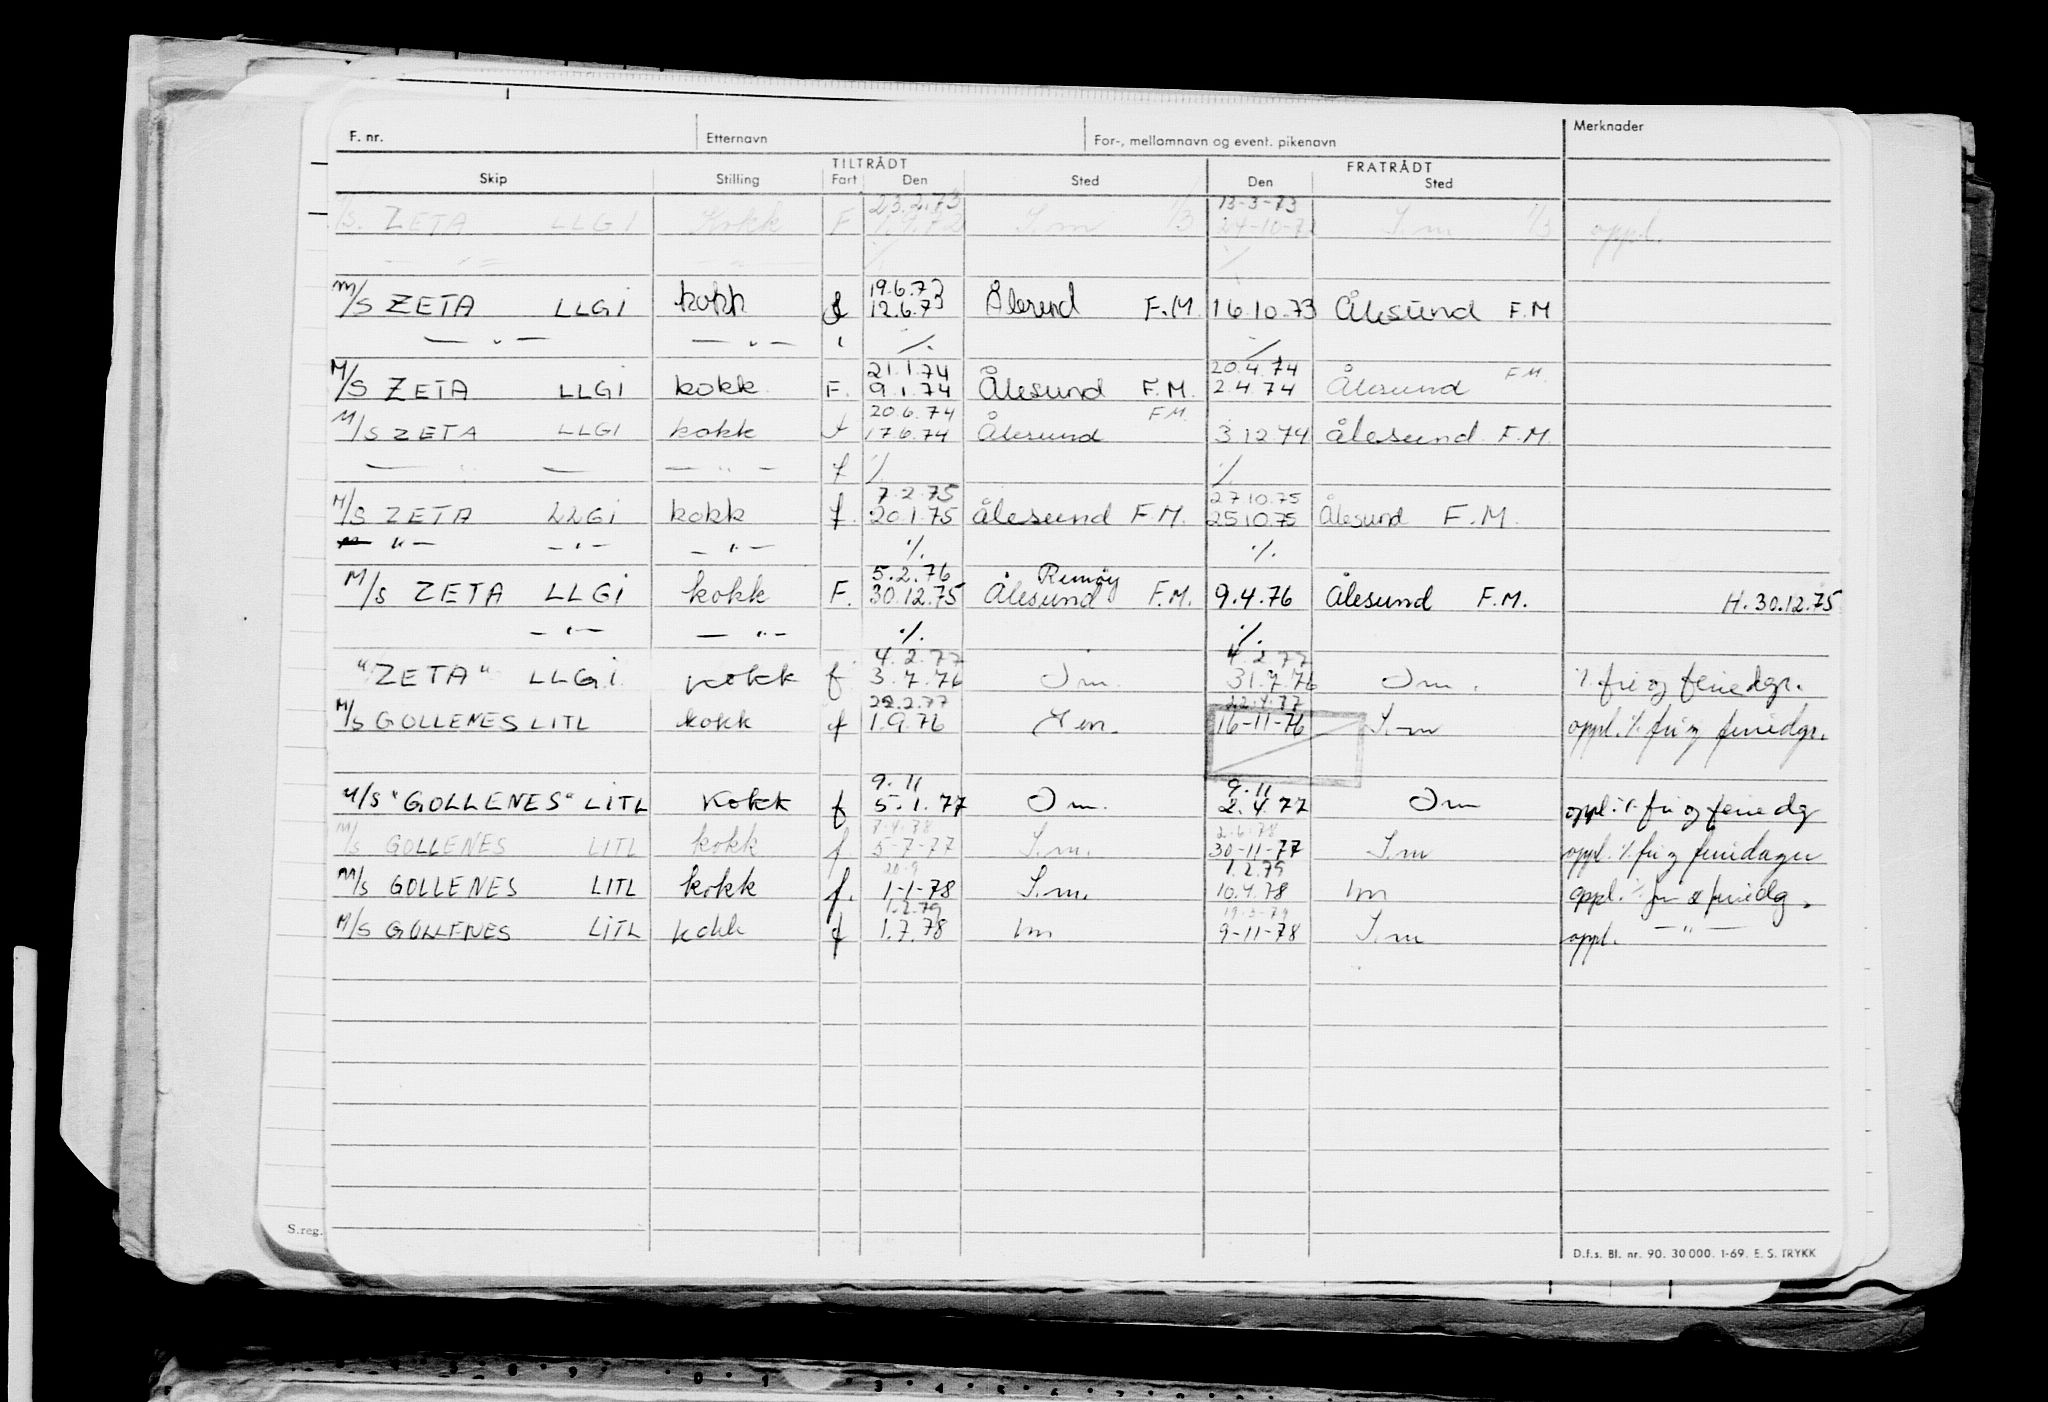 F. nr. Etternavn For-, mellomnavn og event. pikenavn Merknader
TILTRÅDT FRATRÅDT
Skip Stilling Fart Den Sted Den Sted
23.2.73 13-3-73
/S. ZETA LLGI Kokk F 1.7.72 S.m 1/3 24-10-72 S.m 1/3 oppl.
— " — — — ./. ./.
19.6.73
M/S ZETA LLGI kokk f 12.6.73 Ålesund F.M. 16.10.73 Ålesund F.M
— " — — " — ./. ./.
21.1.74 20.4.74 F.M.
M/S ZETA LLGI kokk F. 9.1.74 Ålesund F.M. 2.4.74 Ålesund
20.6.74 F.M.
M/S ZETA LLGI kokk f 17.6.74 Ålesund 3.12.74 Ålesund F.M.
— " — — " — f ./. ./.
7.2.75 27.10.75
M/S ZETA LLGI kokk f. 20.1.75 Ålesund F.M. 25.10.75 Ålesund F.M.
" — — " — — " — ./. ./.
5.2.76 Remøy
M/S ZETA LLGI kokk F. 30.12.75 Ålesund F.M. 9.4.76 Ålesund F.M. H.30.12.75
— " — — " — ./. ./.
4.2.77 4.2.77
"ZETA" LLGI kokk f 3.7.76 Sm. 31.7.76 Sm. ./. fri og feriedgr.
22.2.77 22.4.77
M/S GOLLENES LITL kokk f 1.9.76 Sm. 16-11-76 S.m oppl. ./. fri og feriedgr.
9.11 9.11
M/S "GOLLENES" LITL kokk f 5.1.77 Sm. 2.4.77 Sm oppl. ./. fri og feriedg
7.4.78 2.6.78
M/S GOLLENES LITL kokk f 5-7-77 S.m. 30-11-77 S.m oppl. ./. fri og feridager
20.9 1.2.79
M/S GOLLENES LITL kokk f. 1-1-78 S.m. 10.4.78 Im oppl. ./. fri & feriedg.
1.2.79 19-3-79
M/S GOLLENES LITL kokk f 1.7.78 Im 9-11-78 S.m oppl. — " —
S.reg.
D.f.s. Bl. nr. 90. 30 000. 1-69. E. S. TRYKK